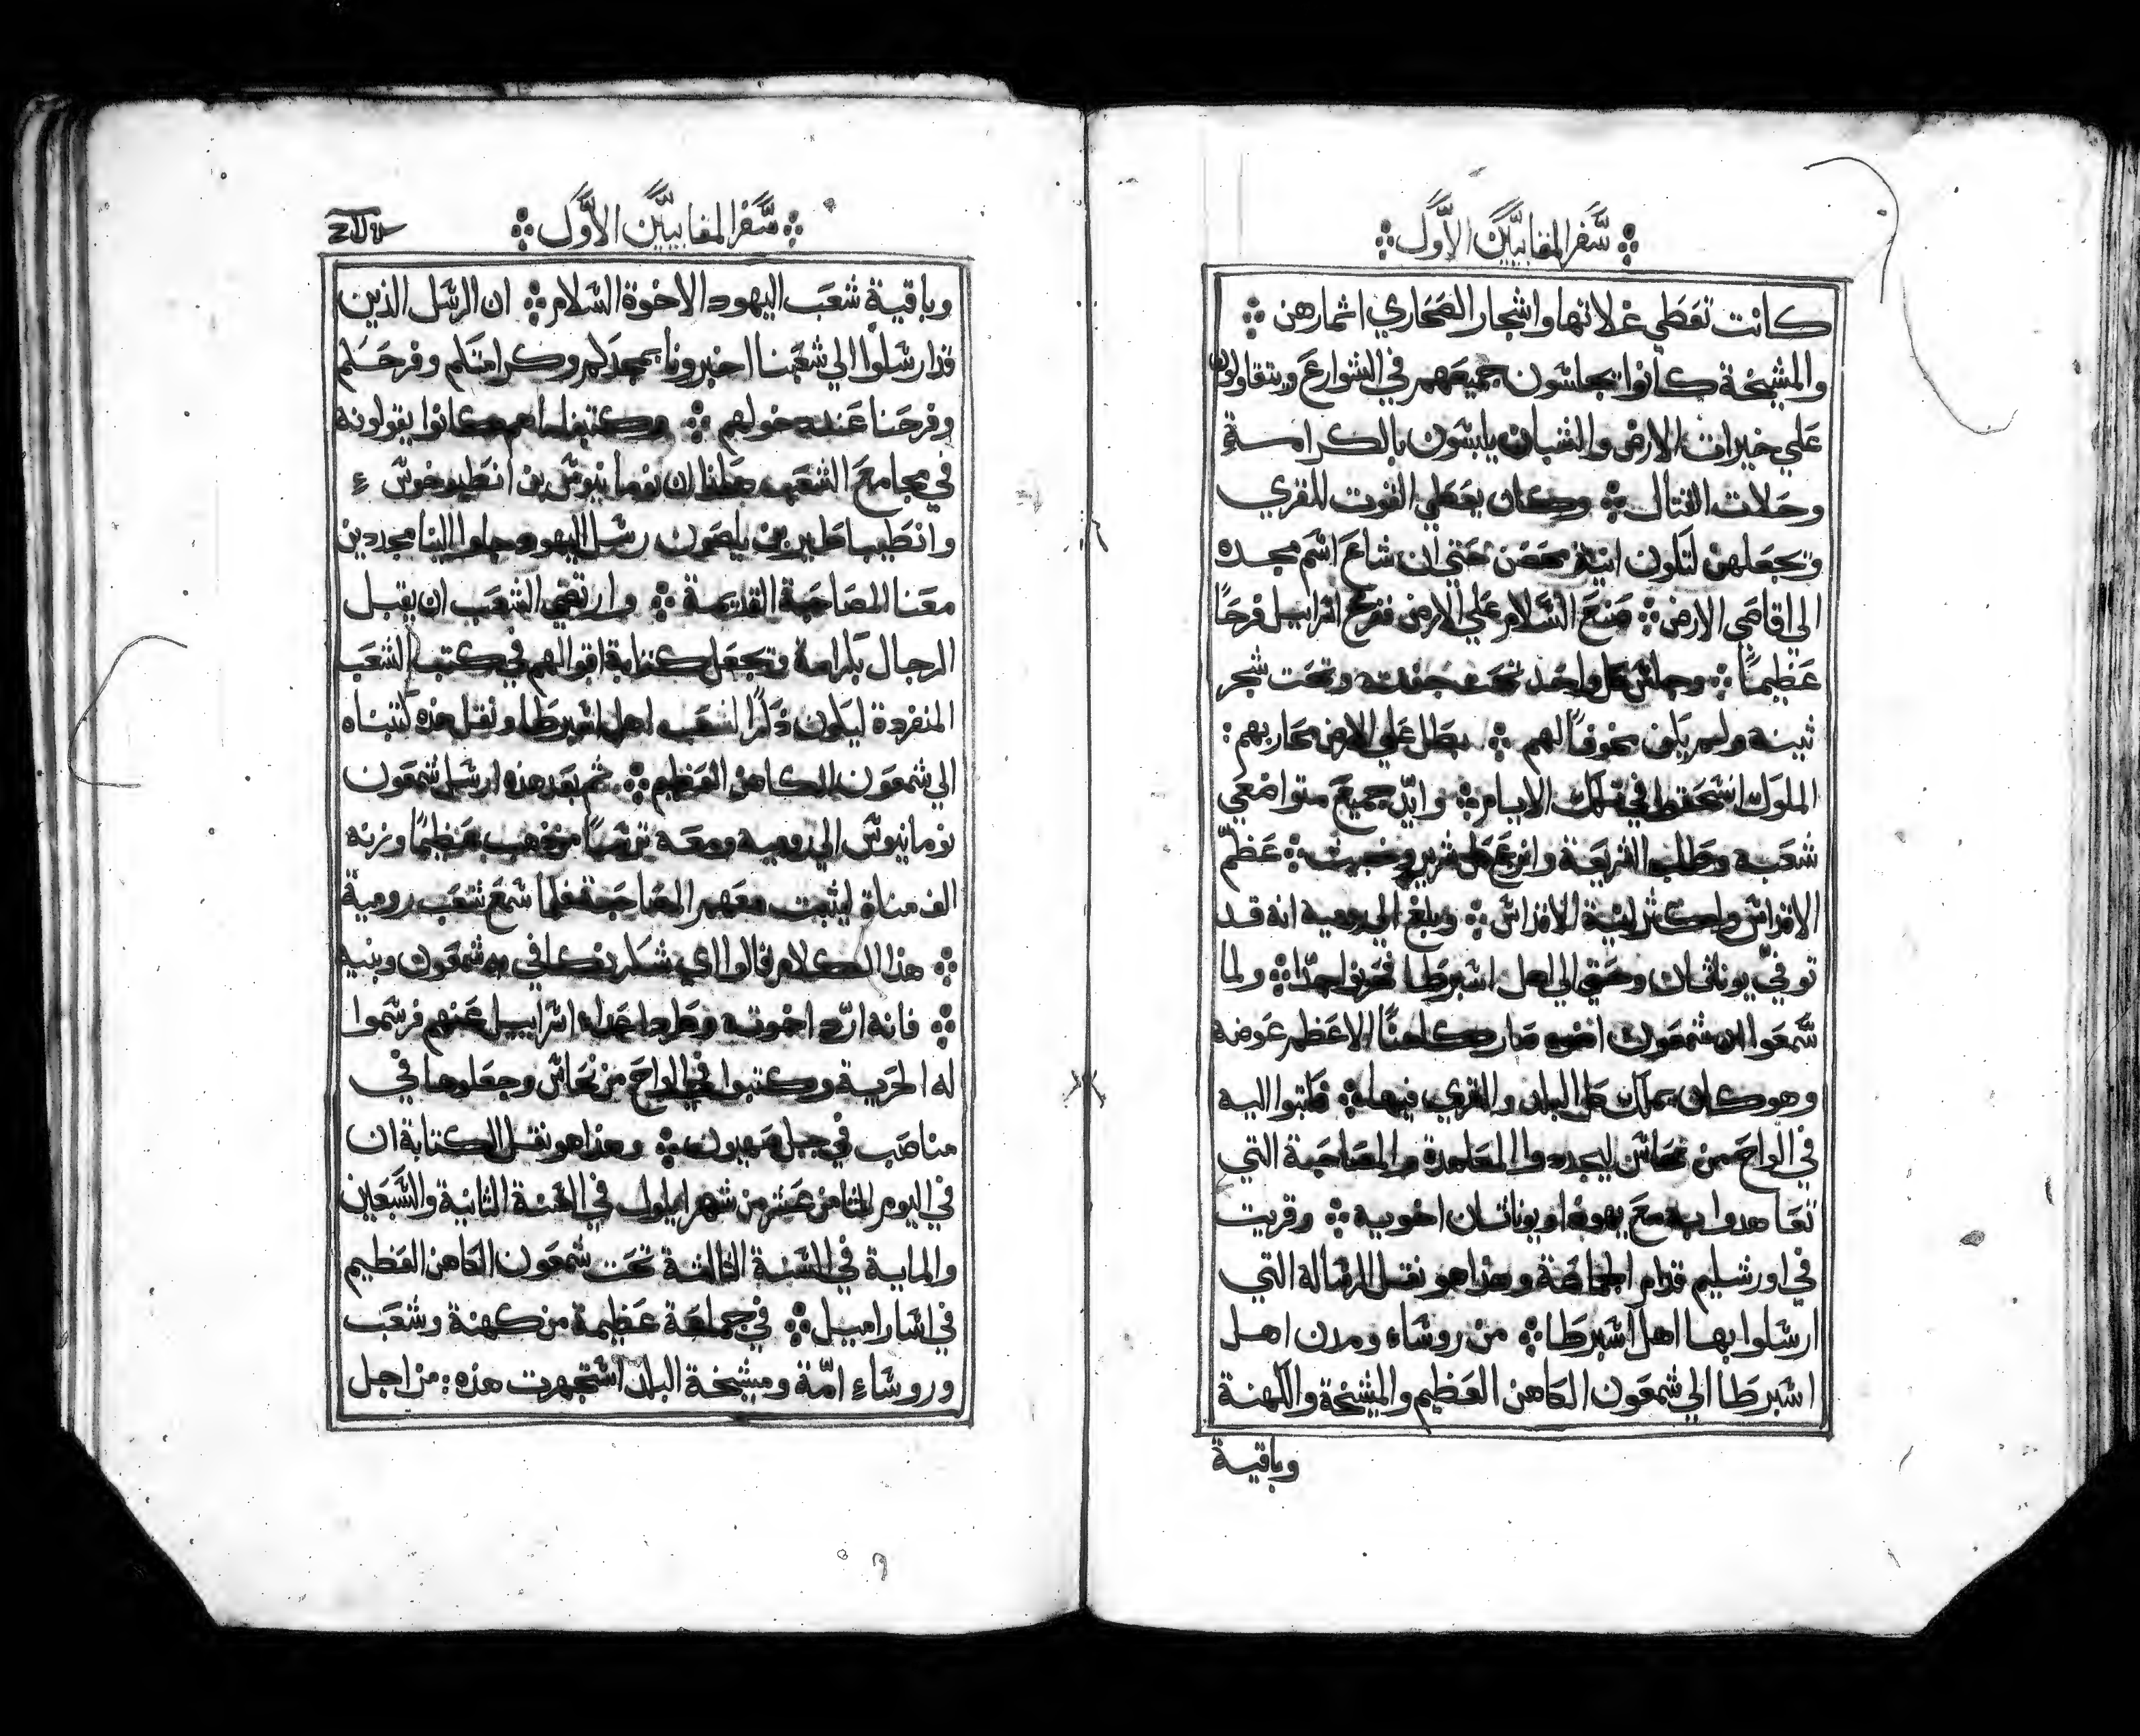 سفر المقابيين الاول
كانت تعطي غلاتها واشجار الصحاري اثمارهن
والمشيخة كانوا يجلسون جميعهم في الشوارع ويتقاولون
علي خيرات الارض والشبان يلبسون بالكرامة
وحلات القتال وكان يعطي القوت للقري
ويجعلهن لتكون انية حصن حتي ان شاع اسم مجده
الي اقاصي الارض صنع السلام علي الارض ففرح اسراييل فرحًا
عظيمًا وجلس كل واحد تحت جفنته وتحت شجر
تينه ولم يكن مخوفًا لهم بطل علي الارض محاربهم
الملوك انسحقوا في تلك الايام وايّد جميع متواضعي
شعبه وطلب الشريعة وانزع كل شرير وخبيث عظّم
الاقداس واكثر انية الاقداس وبلغ الي رومية انه قد
توفيّ يوناثان وحتي الي اهل اسبرطا فحزنوا جدًا ولما
سمعوا ان شمعون اخوه صار كاهنًا الاعظم عوضه
وهو كان يملك كل البلد والقري فيها فكتبوا اليه
في الواح من نحاس ليجددوا المعاهدة والمصاحبة التي
تعاهدوا بها مع يهوذا ويوناثان اخويه وقريت
في اورشليم قدام الجماعة وهذا هو نقل الرسالة التي
ارسلوا بها اهل اسبرطا من روساء ومدن اهل
اسبرطا الي شمعون الكاهن العظيم والمشيخة والكهنة
وباقية
سفر المقابيين الاول
وباقية شعب اليهود الاخوة السلام ان الرسل الذين
قد ارسلوا الي شعبنا اخبرونا بمجدكم وكرامتكم وفرحكم
وفرحنا عند دخولهم وكتبنا ما هم كانوا يقولونه
في مجامع الشعب هكذا ان نومانيوس بن انطيوخوس
وانطيباطير بن ياصون رسل اليهود جاوا الينا مجددين
معنا المصاحبة القديمة وارتضي الشعب ان يقبل
الرجال بكرامة وتجعل كتابة اقوالهم في كتب الشعب
المنفردة ليكون ذكرًا لشعب اهل اسبرطا ونقل هذه كتبناه
الي شمعون الكاهن العظيم ثم بعد هذه ارسل شمعون
نومانيوس الي رومية ومعه ترسًا من ذهب عظيمًا وزنه
الف مناة ليثبت معهم المصاحبة فلما سمع شعب رومية
هذا الكلام قالوا اي شكر نكافي به شمعون وبنيه
فانه ارّد اخوته وطرد اعداء اسراييل عنهم فرسموا
له الحرية وكتبوا في الواح من نحاس وجعلوها في
مناصب في جبل صهيون وهذا هو نقل الكتابة ان
في اليوم الثامن عشر من شهر ايلول في السنة الثانية والسبعين
والماية في السنة الثالثة تحت شمعون الكاهن العظيم
في اسارامييل في جماعة عظيمة من كهنة وشعب
وروساء امّة ومشيخة البلد استجهرت هذه من اجل